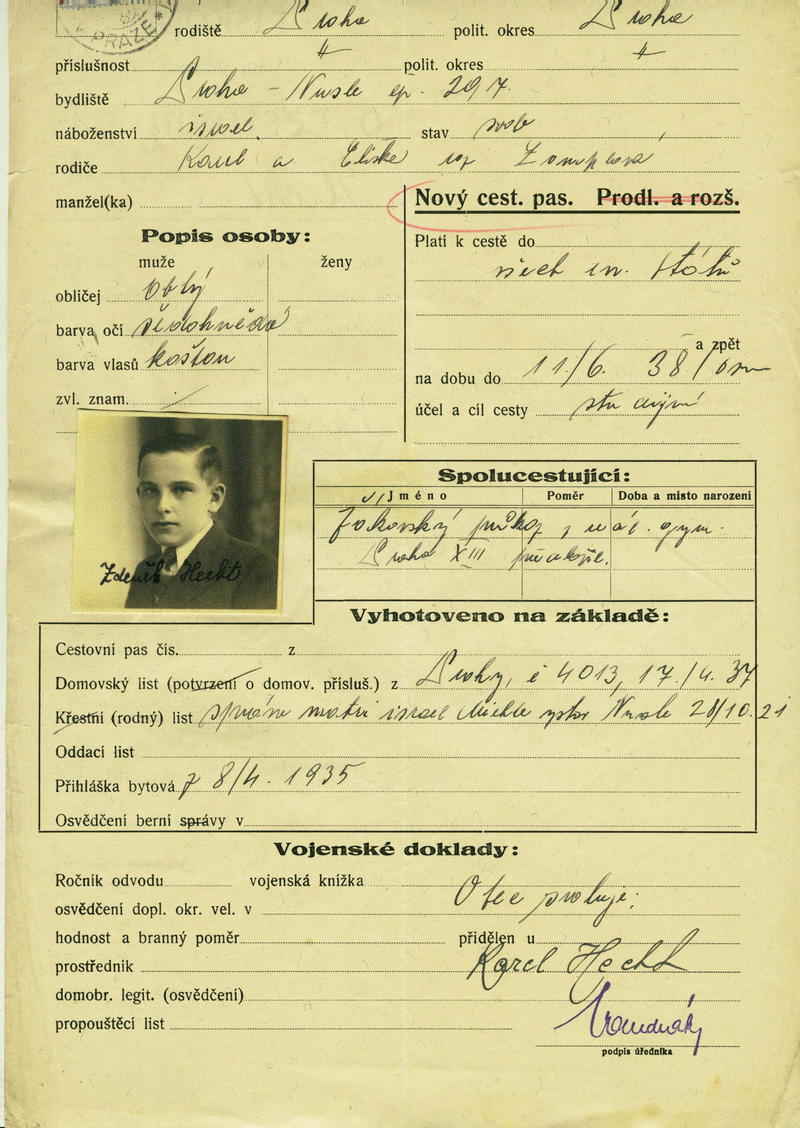 PRAZE
rodiště Praha polit. okres Praha
příslušnost " polit. okres "
bydliště Praha - Nusle čp. 297.
náboženství israel. stav svob
rodiče Karel a Eliška roz
manžel(ka)
Nový cest. pas. Prodl. a rozš.
Popis osoby:
muže ženy
obličej oblý
barva očí šedohnědá
barva vlasů kaštan
zvl. znam. /
Platí k cestě do
všech in. států
a zpět
na dobu do 11/6. 38/
účel a cíl cesty studijní
Zdeněk Hecht
Spolucestující:
Jméno Poměr Doba a místo narození
Žákovský průkaz z reál. gym.
Praha XIII
Vyhotoveno na základě:
Cestovní pas čís. z
Domovský list (potvrzení o domov. přísluš.) z Prahy, č 4013, 17./4. 37
Křestní (rodný) list správ. matr. israel Michle Nusle 28/10.21
Oddací list
Přihláška bytová z 8/4. 1935
Osvědčení berní správy v
Vojenské doklady:
Ročník odvodu vojenská knížka
osvědčení dopl. okr. vel. v
Otec svoluje:
hodnost a branný poměr přidělen u
prostředník Karel Hecht
domobr. legit. (osvědčení)
propouštěcí list
podpis úředníka